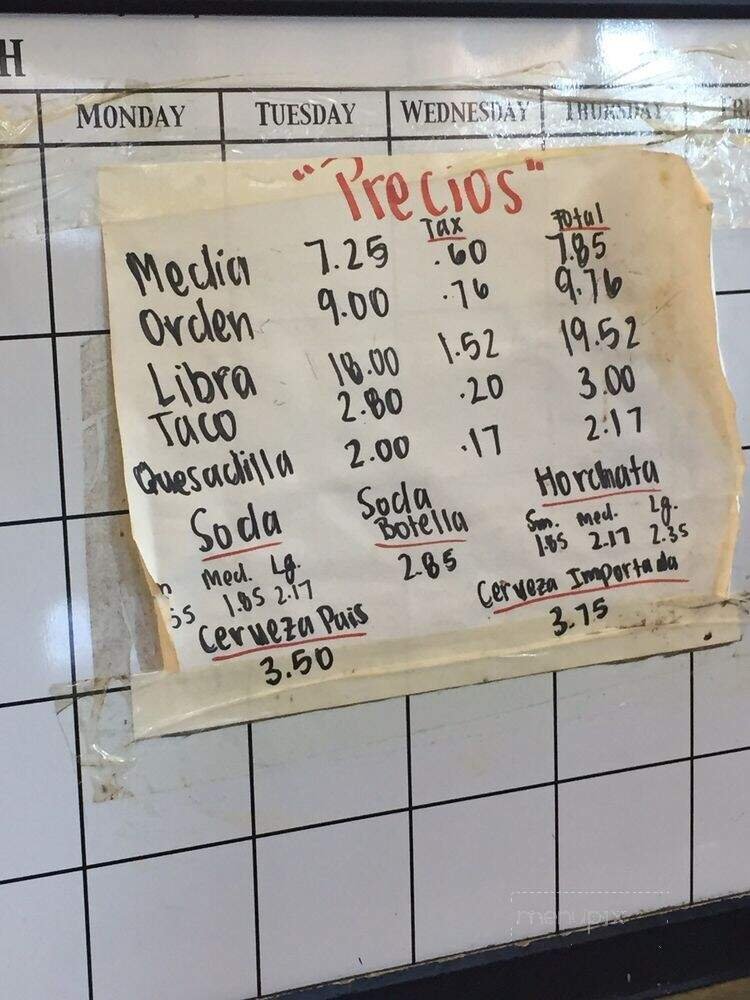 H
MONDAY TUESDAY WEDNESDAY THURSDAY FR
"Precios"
Tax Total
Media 7.25 .60 7.85
Orden 9.00 .76 9.76
Libra 18.00 1.52 19.52
Taco 2.80 .20 3.00
Quesadilla 2.00 .17 2.17
Soda Soda Botella Horchata
Med. Lg. 2.85 Sm. Med. Lg.
1.85 2.17 1.85 2.17 2.35
Cerveza Pais Cerveza Importada
3.50 3.75
menupix